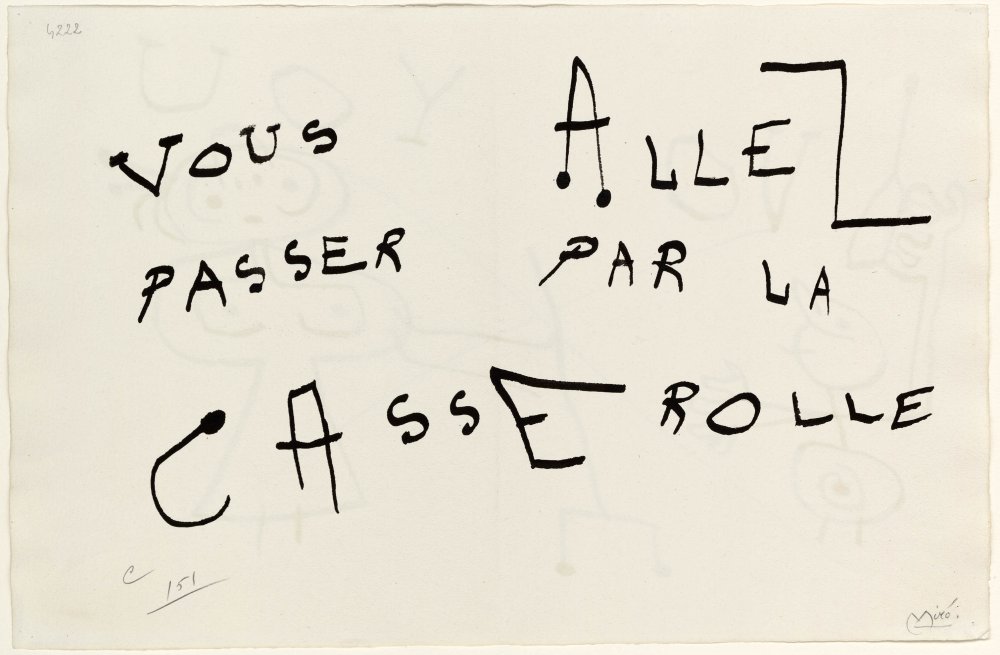 4222
VOUS ALLEZ
PASSER PAR LA
CASSEROLLE
C 151
Miró.